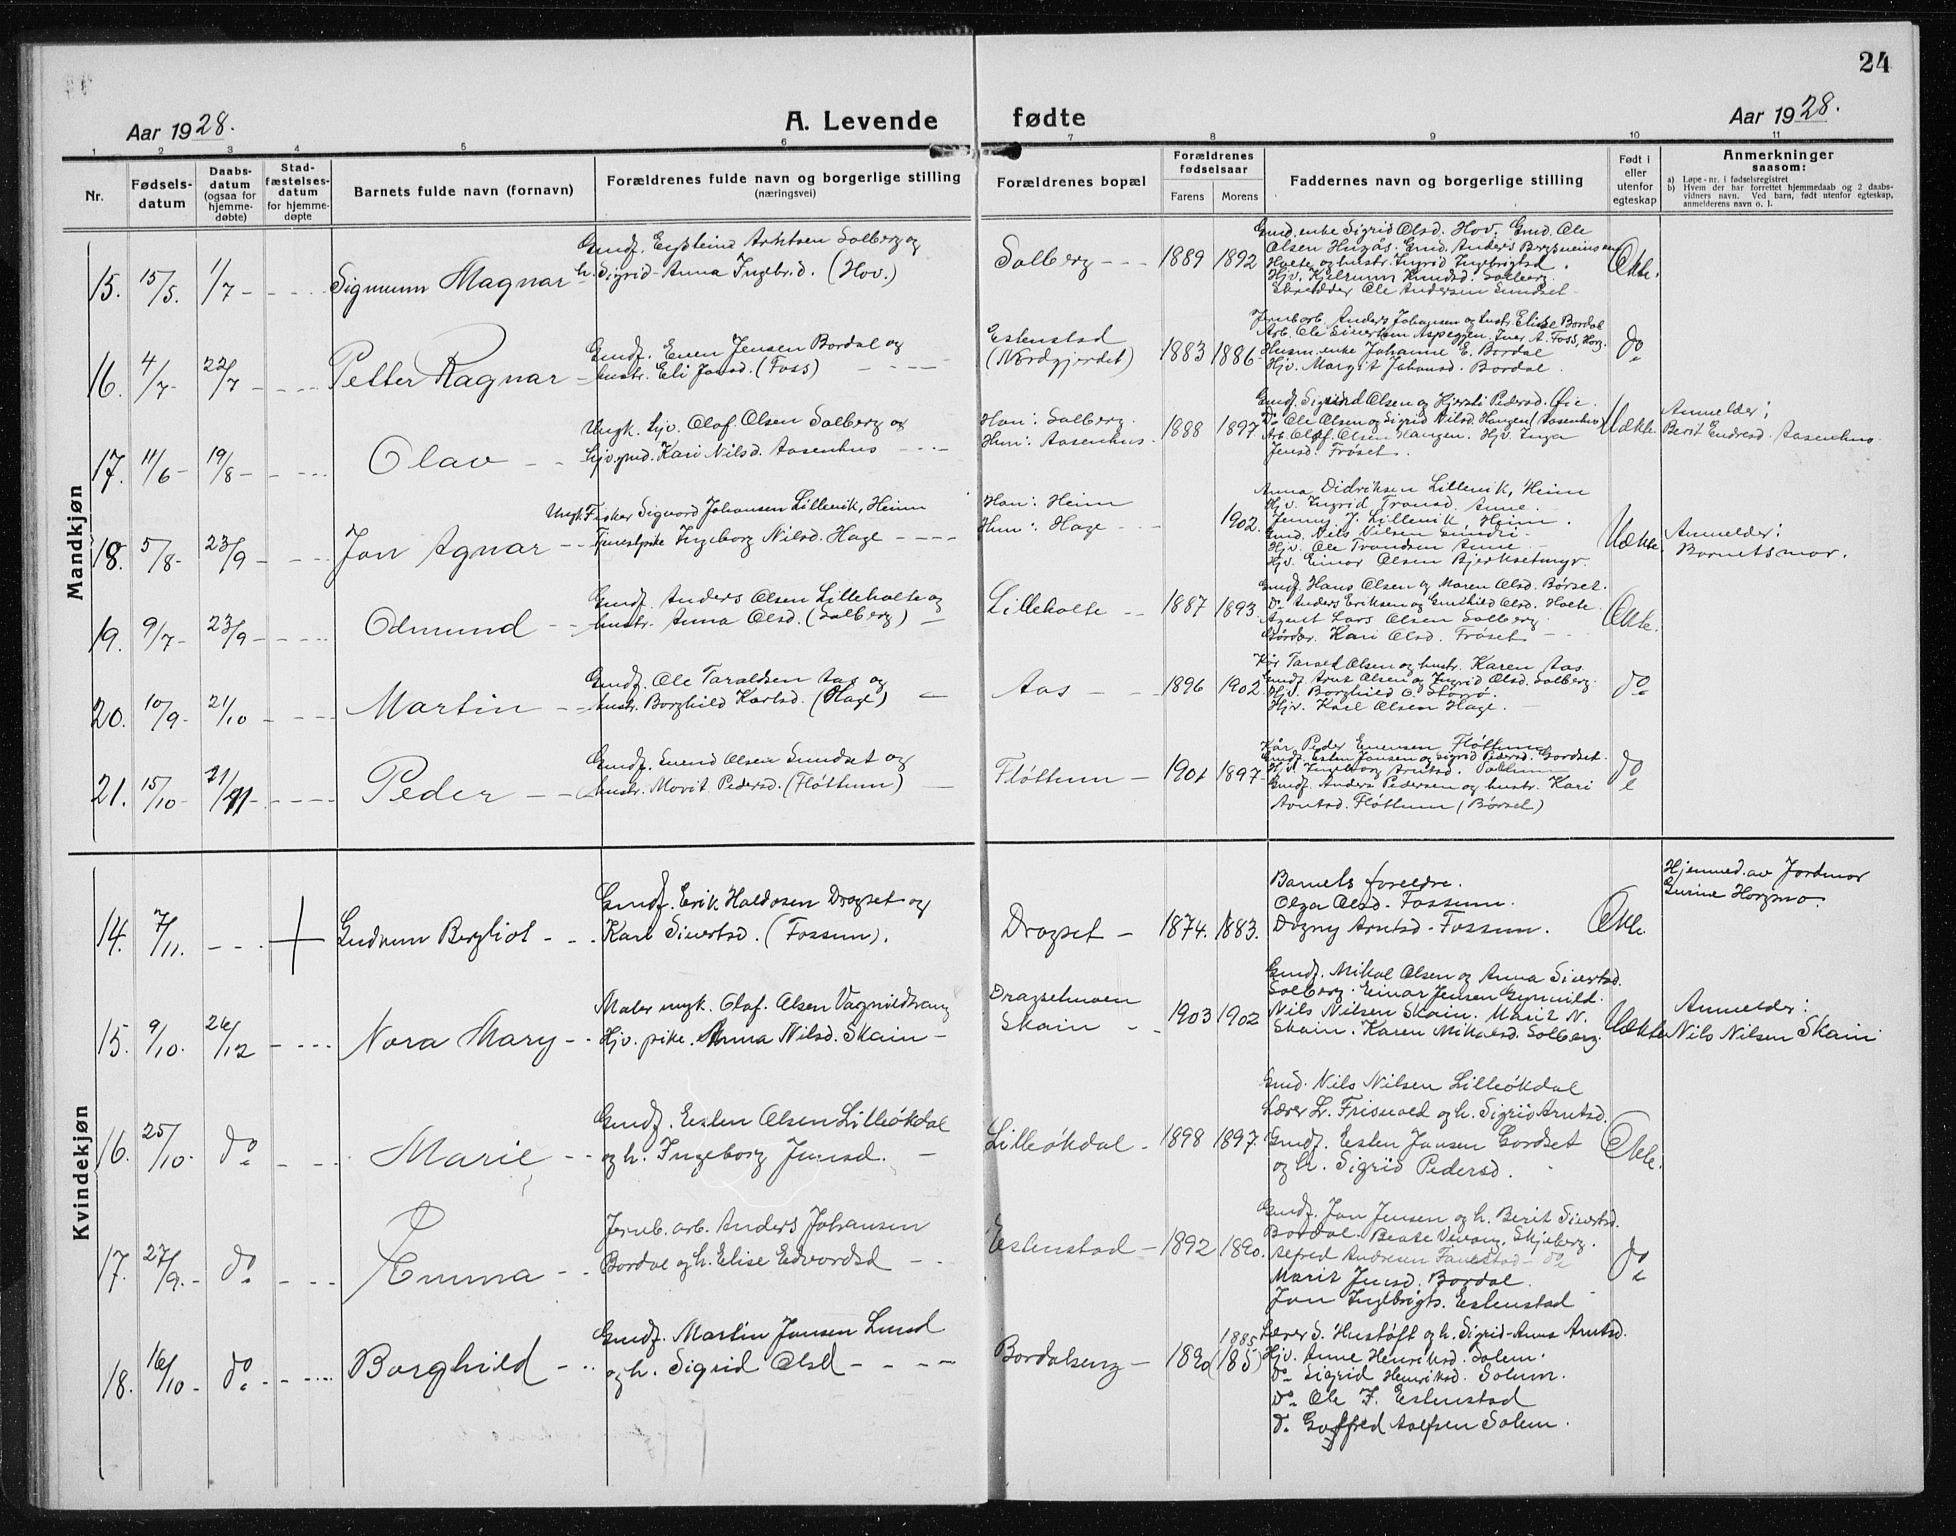 24
Aar 1928. A. Levende fødte Aar 1928.
1 2 3 4 5 6 7 8 9 10 11
Nr.
Fødsels-
datum
Daabs-
datum
(ogsaa for
hjemme-
døbte)
Stad-
fæstelses-
datum
for hjemme-
døpte
Barnets fulde navn (fornavn)
Forældrenes fulde navn og borgerlige stilling
(næringsvei)
Forældrenes bopæl
Forældrenes
fødselsaar
Farens Morens
Faddernes navn og borgerlige stilling
Født i
eller
utenfor
egteskap
Anmerkninger
saasom:
a) Løpe-nr. i fødselsregistret
b) Hvem der har forrettet hjemmedaab og 2 daabs-
vidners navn. Ved barn, født utenfor egteskap,
anmelderens navn o. l.
Mandkjøn
15. 15/5. 1/7 - - - - Sigmunn Magnar -
Gmdf. Eysteins Arntsen Solberg og
h. Sigrid-Anna Ingebr.d. (Hov.)
Solberg - - - 1889 1892
Gmd.enke Sigrid Olsd. Hov. Gmd. Ole
Olsen Hugås. Gmd. Anders
Holte og hustr. Ingrid Ingebrigtsd.
Hjv. Kjellrunn Knudsd. Solberg.
Skrædder Ole Andersen Sundset -
Ekte.
16. 4/7- 22/7 - - - - Petter Ragnar -
Gmdf. Even Jensen Bordal og
hustr. Eli Jonsd. (Foss) - - - -
Estenstad
(Nordgjerdet) 1883 1886
Jernb.arb. Anders Johansen og hustr. Elise Bordal
Arb. Ole Sivertsen Aspeggen. Iver A. Foss, Horg.
Husm.enke Johanne E. Bordal
Hjv. Margit Johansd. Bordal.
do
17. 11/6 19/8 - - - Olav - -
Ungk. hjv. Olaf Olsen Solberg og
hjv. gmd. Kari Nilsd. Aasenhus - - - -
Han: Solberg.
Hun: Aasenhus. 1888 1897
Gmdf. Sigurd Olsen og Kjersti Pedersd. Øie.
Do Ole Olsen og Sigrid Nilsd. Haugen (Aasenhus)
Arb. Olaf Olsen Haugen. Hjv. Inga
Jensd. Frøset.
Uekte.
Anmelder:
Berit Endresd. Aasenhus.
18. 5/8- 23/9 - - - - Jon Agnar - -
Ungk. Fisker Sigvard Johansen Lillevik, Heim
Tjenestpike Ingeborg Nilsd. Hage - - - -
Han: Heim
Hun: Hage - - - 1902.
Anna Didriksen Lillevik, Heim
Hjv. Ingrid Tronsd. Anne.
Jenny J. Lillevik, Heim.
Gmd. Nils Nilsen
Hjv. Ole Trondsen Anne -
Hjv. Einar Olsen Bjerksetmyr.
Uekte.
Anmelder:
Barnets mor.
19. 9/7- 23/9 - - - - Odmund - -
Gmdf. Anders Olsen Lilleholte og
hustr. Anna Olsd. (Solberg) -
Lilleholte - - 1887 1893
Gmdf. Hans Olsen og Maren Olsd. Børset.
Do Anders Eriksen og Gunhild Olsd. Holte.
Agent Lars Olsen Solberg.
Gårdbr. Kari Olsd. Frøset -
Ekte.
20. 10/9- 21/10 - - - - Martin - -
Gmdf. Ole Taraldsen Aas og
hustr. Borghild Karlsd. (Hage) -
Aas - - 1896 1902
Kår Tarald Olsen og hustr. Karen Aas
Gmdf. Arnt Olsen og Ingrid Olsd. Solberg.
Hjv. Borghild O. Størrø.
Hjv. Karl Olsen Hage. -
do
21. 15/10- 21/11- - - - - Peder - -
Gmdf. Svend Olsen Sundset og
hustr. Marit Pedersd. (Fløttum) -
Fløttum - 1901 1897-
Kår Peder Evensen Fløttum
Gmdf. Esten Jonsen og Sigrid Pedersd. Gordset.
Hjv. Ingeborg Arntsd. Solem
Gmdf. Anders Pedersen og hustr. Kari
Arntsd. Fløttum (Børset)
do
Kvindekjøn
14. 7/11. - - - + Gudrunn Bergliot - - -
Gmdf. Erik Haldosen Dragset og
Kari Sivertsd. (Fossum).
Dragset - 1874. 1883.
Barnets foreldre.
Olga Olsd. Fossum.
Dagny Arntsd. Fossum.
Ekte.
Hjemmed. av Jordmor
Gurine Horgmo.
15. 9/10. 26/12 - - - - Nora Mary - -
Maler ungk. Olaf Olsen Vagnildtrang
Hjv. pike. Anna Nilsd. Skain -
Dragsetmoen
Skain - - 1903 1902
Gmdf. Mikal Olsen og Anna Sivertsd.
Solberg. Einar Jensen Gynnild.
Nils Nilsen Skain. Marit N.
Skain. Karen Mikalsd. Solberg.
Uekte
Anmelder:
Nils Nilsen Skain
16. 25/10- do - - - Marie - -
Gmdf. Esten Olsen Lilleökdal
og h. Ingeborg Jonsd. -
Lilleökdal - 1898 1897
Gmd. Nils Nilsen Lilleökdal
Lærer L. Frisvold og h. Sigrid Arntsd.
Gmdf. Esten Jonsen Gordset
og h. Sigrid Pedersd.
Ekte.
17. 27/9. - do - - - Emma - -
Jernb. arb. Anders Johansen
Bordal og h. Elise Edvardsd - -
Estenstad - 1892 1890.
Gmdf. Jon Jensen og h. Berit Sivertsd.
Bordal. Beate Vevang, Skjeberg.
Alfred Andreas - do
Marit Jonsd. Bordal.
Jon Ingebrigts. Estenstad
do
18. 16/10- do - - - - Borghild - - -
Gmdf. Martin Jonsen Lund
og h. Sigrid Olsd - - - -
Bordalseng - 1890 1885. (185)
Lærer S. Hustoft og h. Sigrid-Anna Arntsd.
Hjv. Anne Henriksd. Solem.
Do Sigrid Henriksd. Solum.
Do Ole J. Estenstad
Do Gotfred Adolfsen Solem.